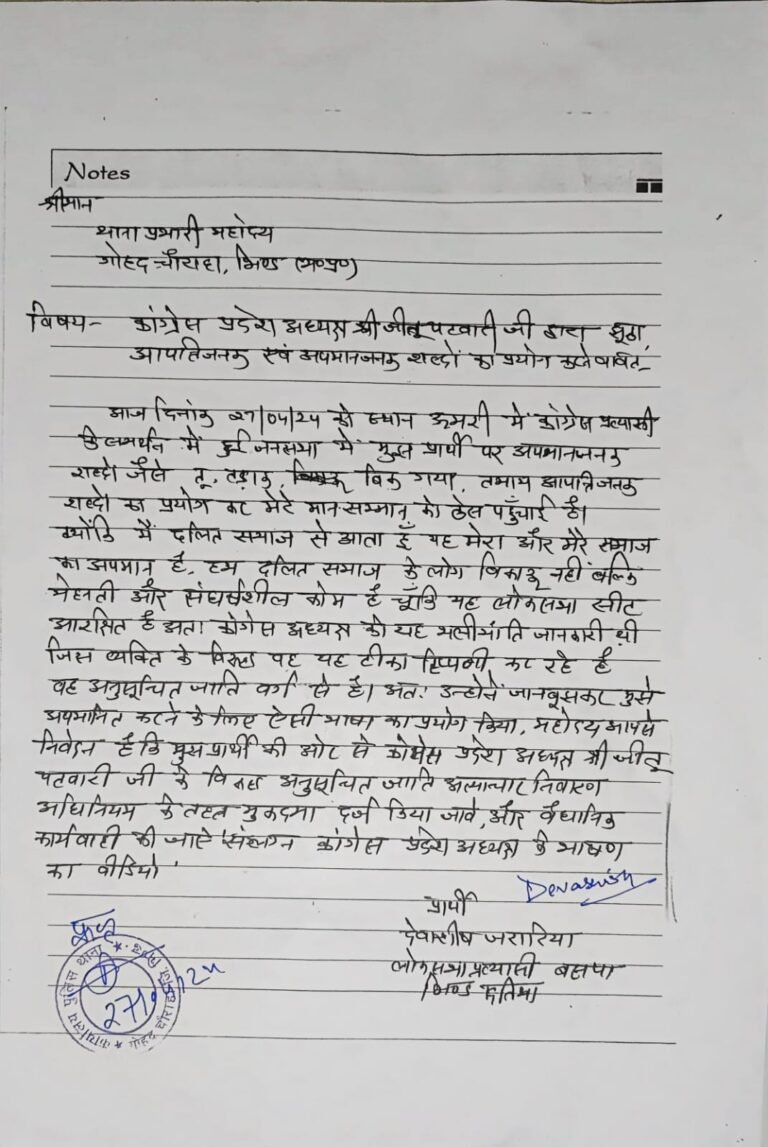 Notes
श्रीमान
थाना प्रभारी महोदय
गोहद चौराहा, भिण्ड (म०प्र०)
विषय- कांग्रेस प्रदेश अध्यक्ष श्री जीतू पटवारी जी द्वारा झूठा,
आपतिजनक एवं अपमानजनक शब्दों का प्रयोग करने बावत-
आज दिनांक 27/04/24 को स्थान ऊमरी में कांग्रेस प्रत्याशी
के समर्थन में हुई जनसभा में मुझ प्रार्थी पर अपमानजनक
शब्दो जैसे तू, तड़ाक, बिक गया, तमाम आपत्तिजनक
शब्दो का प्रयोग कर मेरे मान सम्मान को ठेस पहुँचाई है।
क्योंकि मैं दलित समाज से आता हूँ यह मेरा और मेरे समाज
का अपमान है, हम दलित समाज के लोग बिकाऊ नहीं बल्कि
मेहनती और संघर्षशील कौम है चूँकि यह लोकसभा सीट
आरक्षित है अतः कांग्रेस अध्यक्ष को यह भलीभांति जानकारी थी
जिस व्यक्ति के विरुद्ध वह यह टीका टिप्पणी कर रहे है
वह अनुसूचित जाति वर्ग से है। अतः उन्होनें जानबूझकर मुझे
अपमानित करने के लिए ऐसी भाषा का प्रयोग किया, महोदय आपसे
निवेदन है कि मुझ प्रार्थी की ओर से कांग्रेस प्रदेश अध्यक्ष श्री जीतू
पटवारी जी के विरुद्ध अनुसूचित जाति अत्याचार निवारण
अधिनियम के तहत मुकदमा दर्ज किया जावे, और वैधानिक
कार्यवाही की जाऐ संलग्न कांग्रेस प्रदेश अध्यक्ष के भाषण
का वीडियो
Devashish
प्रार्थी
देवाशीष जरारिया
लोकसभा प्रत्याशी बसपा
भिण्ड दतिया
कार्यालय पुलिस थाना